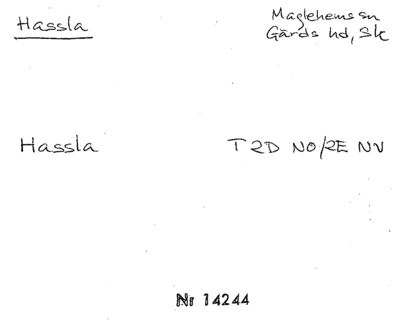 Hassla
Maglehems sn
Gärds hd, Sk
Hassla
T 2D NO/2E NV
Nr 14244